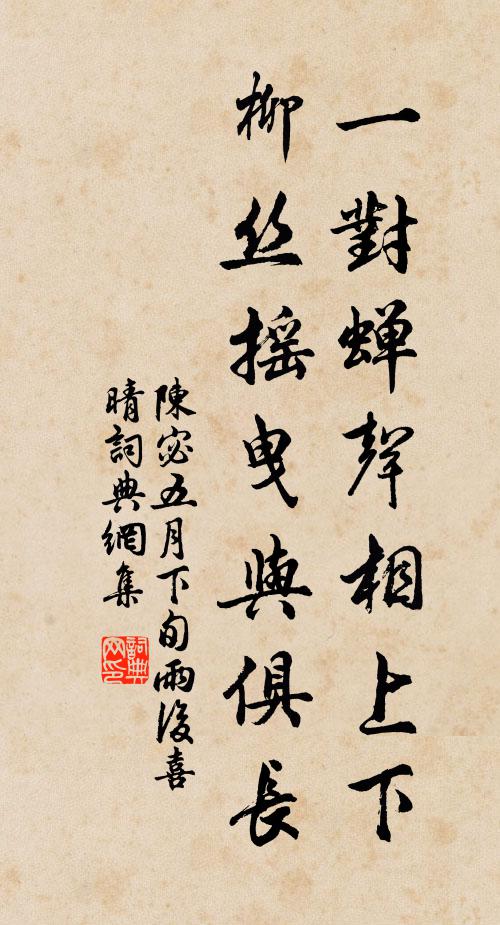 一對蝉聲相上下
柳丝摇曳與俱長
陳宓五月下旬雨後喜
晴詞典網集
詞典网印